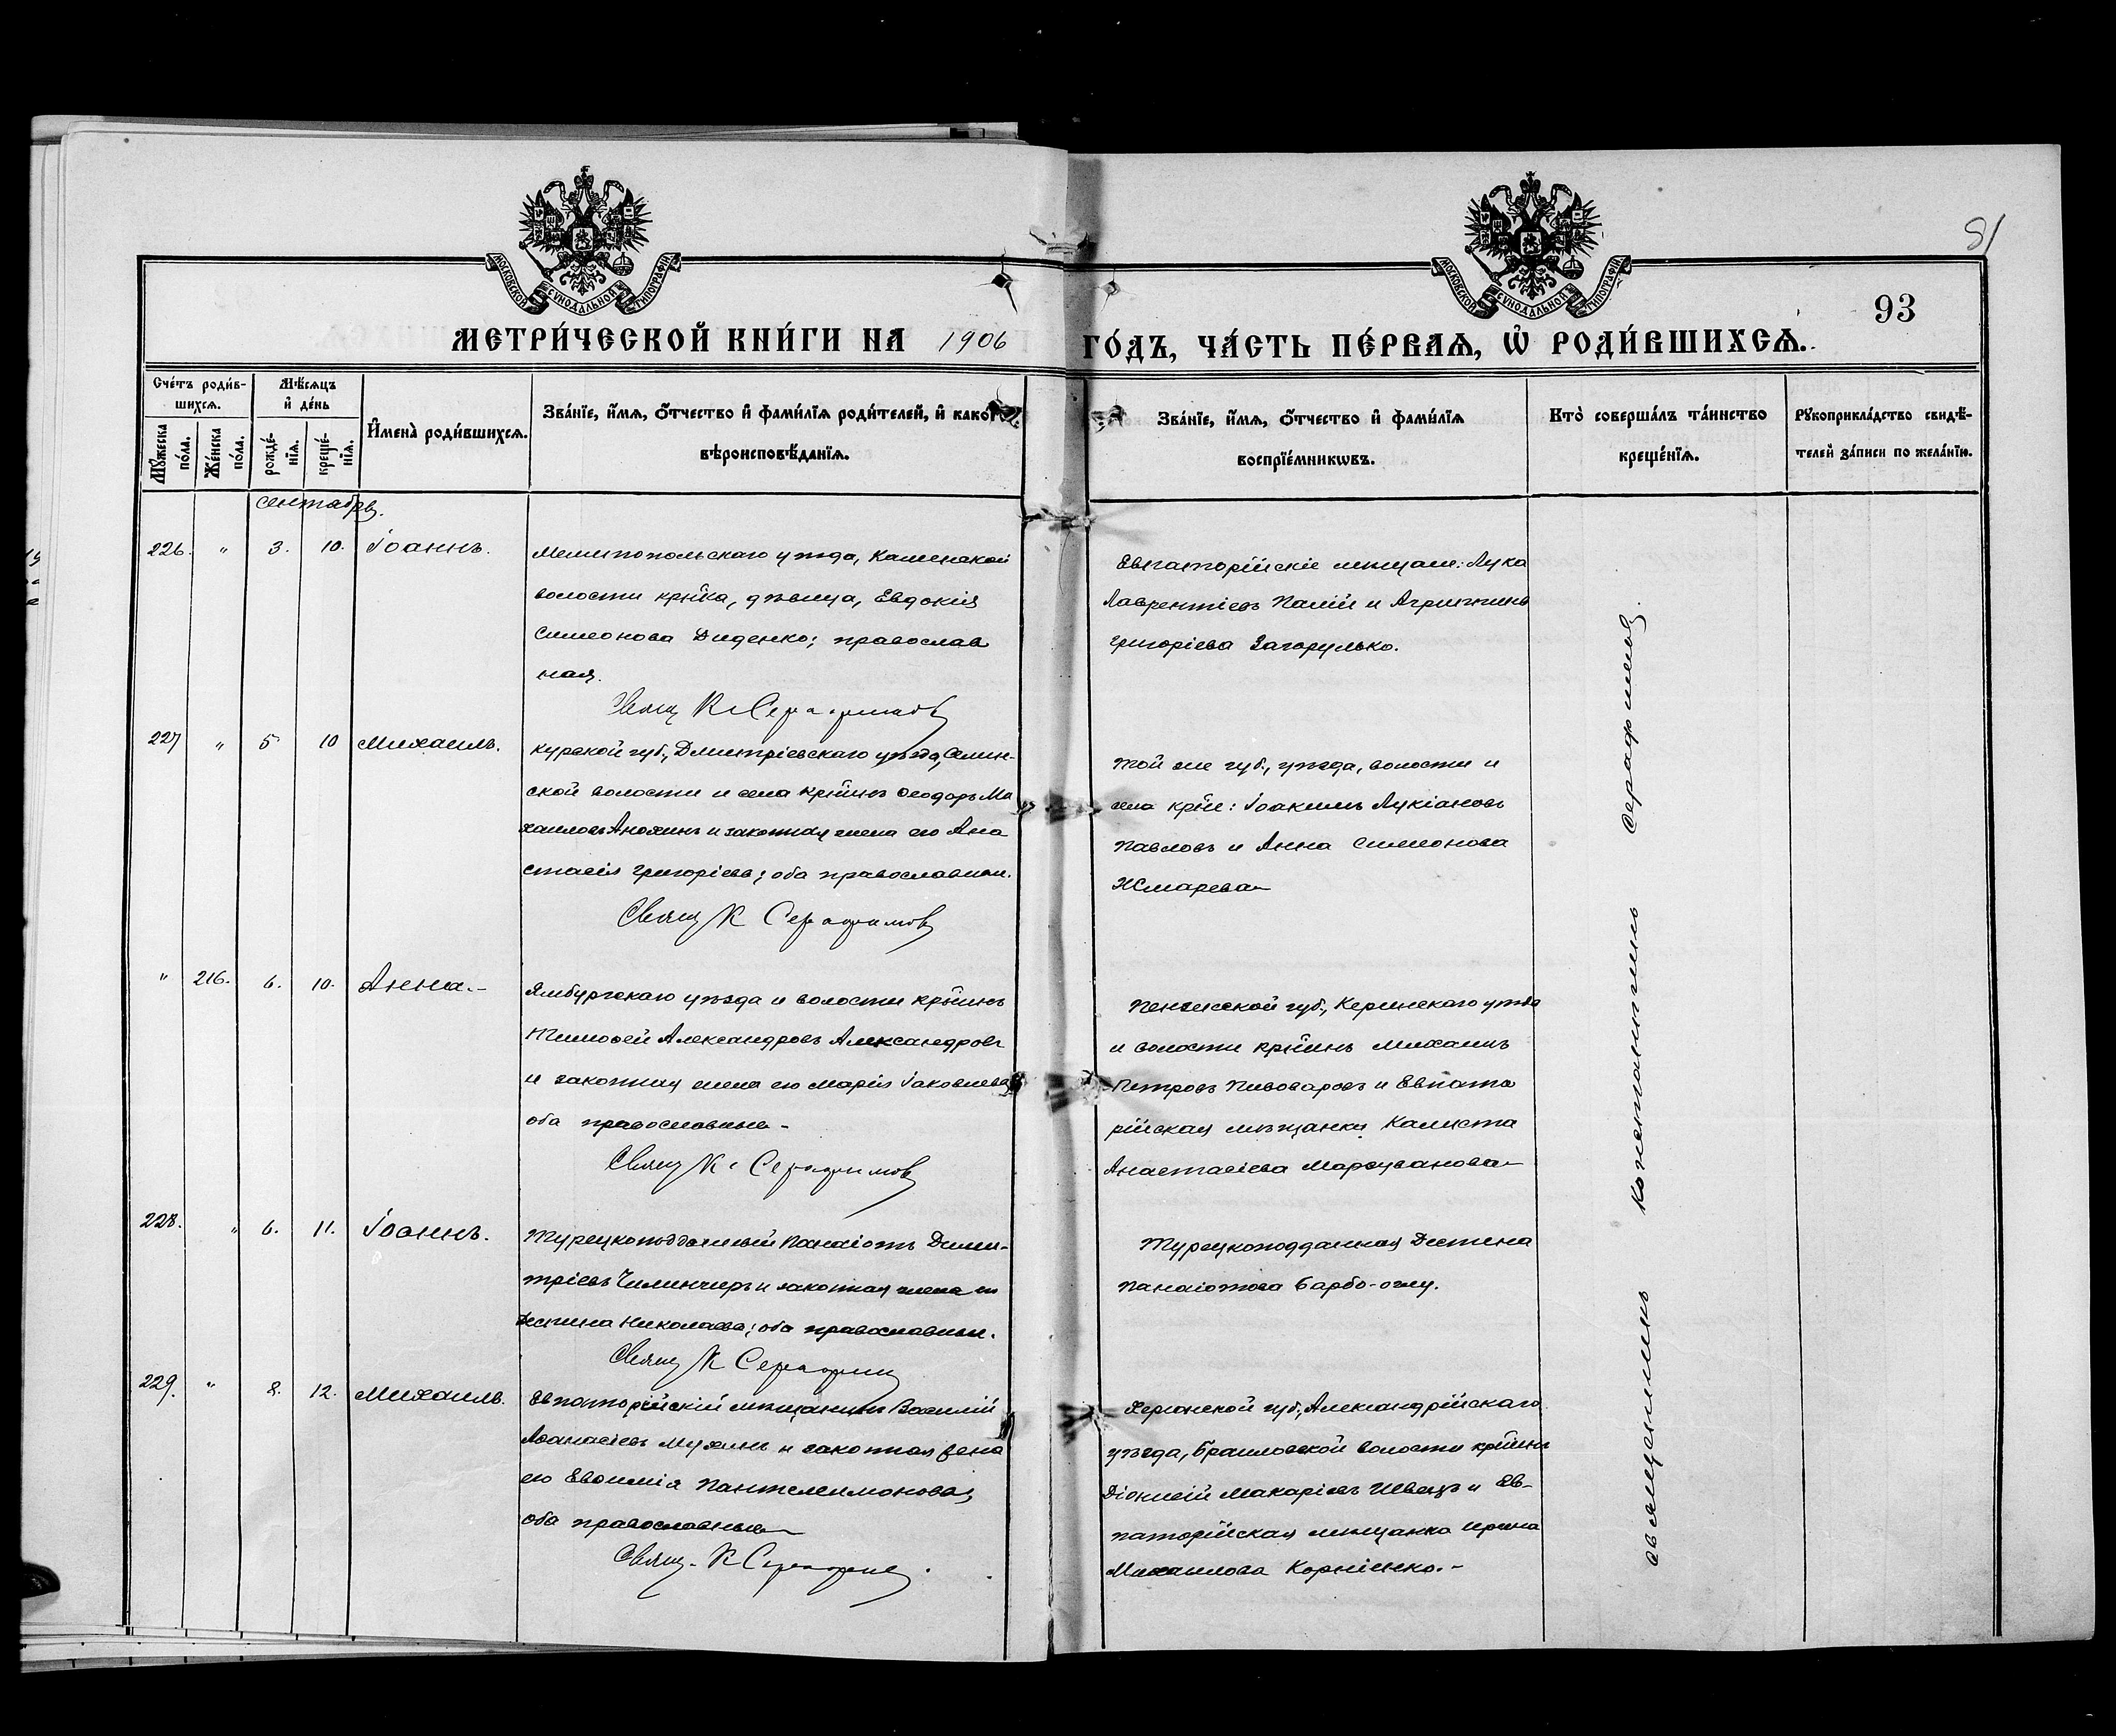 81
93
МОСКОВСКОЙ СѴНОДАЛЬНОЙ ТИПОГРАФІИ
МОСКОВСКОЙ СѴНОДАЛЬНОЙ ТИПОГРАФІИ
МЕТРИ́ЧЕСКОЙ КНИ́ГИ НА 1906 ГО́ДЪ, ЧА́СТЬ ПЕ́РВАѦ, Ѽ РОДИ́ВШИХСѦ.
Сче́тъ роди́в-
шихсѧ.
Мꙋ́жеска по́ла.
Же́нска по́ла.
Мѣ́сѧцъ
и҆ де́нь
рожде́-
нїѧ.
креще́-
нїѧ.
И҆мена̀ роди́вшихсѧ.
Зва́нїе, и҆́мѧ, ѻ҆́тчество и҆ фами́лїѧ роди́телей, и҆ како́гѡ
вѣроисповѣ́данїѧ.
Зва́нїе, и҆́мѧ, ѻ҆́тчество и҆ фами́лїѧ
воспрїе́мникѡвъ.
Кто̀ соверша́лъ та́инство
креще́нїѧ.
Рꙋкоприкла́дство свидѣ́-
телей за́писи по жела́нїю.
Сентябрь.
226. " 3. 10. Іоаннъ.
Мелитопольскаго уѣзда, Каменской
волости кр–ка, дѣвица, Евдокія
Симеонова Диденко; православ
ная.
Свящ К. Серафимовъ
Евпаторійскіе мѣщане: Лука
Лаврентіевъ Палій и
Григоріева Загорулько.
227 " 5 10 Михаилъ.
Курской губ., Дмитріевскаго уѣзда,
ской волости и села кр–инъ Ѳеодоръ Ми
хаиловъ Анохинъ и законная жена его Ана
стасія Григоріева; оба православные.
Свящ К Серафимовъ
Той же губ., уѣзда, волости и
села кр–не: Іоакимъ Лукіановъ
Павловъ и Анна Симеонова
Жмарева
" 216. 6. 10. Анна.-
Ямбургскаго уѣзда и волости кр–инъ
Тимоѳей Александровъ Александровъ
и законная жена его Марія Іаковлева,
оба православные -
Свящ К. Серафимовъ
Пензенской губ., Керенскаго уѣзда
и волости кр–инъ Михаилъ
Петровъ Пивоваровъ и Евпато
рійская мѣщанка Калиста
Анастасіева
228. " 6. 11. Іоаннъ.
Турецкоподданный Панаіотъ Дими-
тріевъ и законная жена его
Деспина Николаева; оба православные.
Свящ К Серафимовъ
Турецкоподданная Деспина
Панаіотова Барбо-оглу.
229. " 8. 12. Михаилъ.
Евпаторійскій мѣщанинъ Василій
Аѳанасіевъ Мухинъ и законная жена
его Евѳимія Пантелеимонова,
оба православные
Свящ. К Серафимовъ
Херсонской губ., Александрійскаго
уѣзда, Браиловской волости кр–инъ
Діонисій Макаріевъ Швецъ и Ев-
паторійская мѣщанка Ирина
Михаилова Корніенко.-
Священникъ Константинъ Серафимовъ.